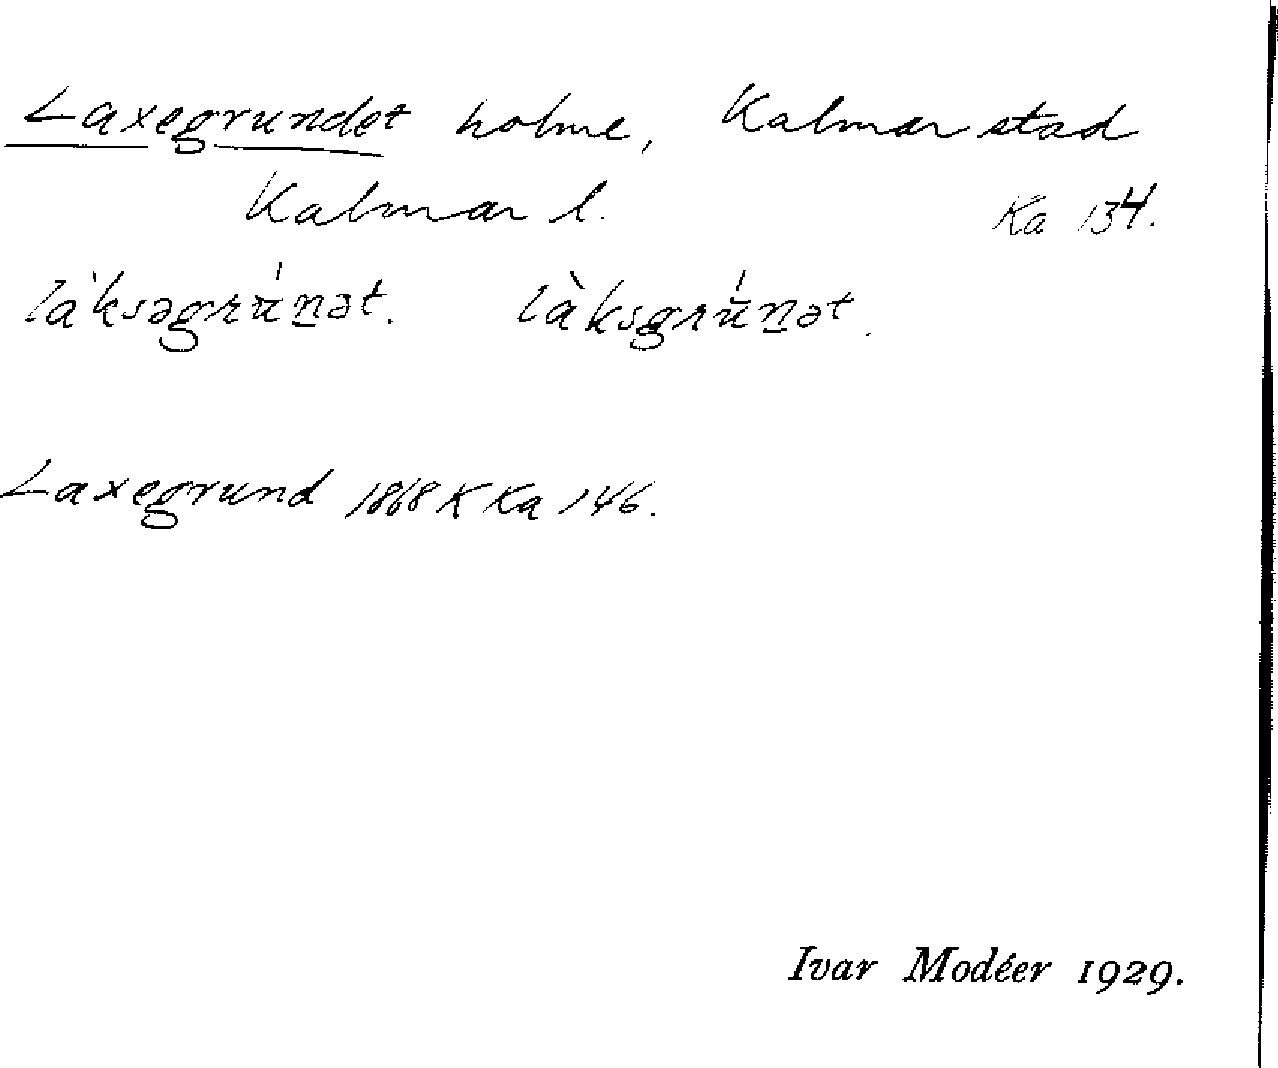 Laxegrundet holme, Kalmar stad
Kalmar l. Ka 134.
làksəgrú̵n̠ət. làksgrú̵n̠ət.
Laxegrund 1868 K Ka 146.
Ivar Modéer 1929.